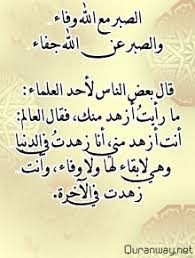 الصبر مع الله وفاء
والصبر عن الله جفاء
قال بعض الناس لأحد العلماء:
ما رأيتُ أزهد منك، فقال العالم:
أنت أزهد مني أنا زهدتُ في الدنيا
وهي لا بقاء لها ولا وفاء، وأنت
زهدت في الآخرة.
Quranway.net